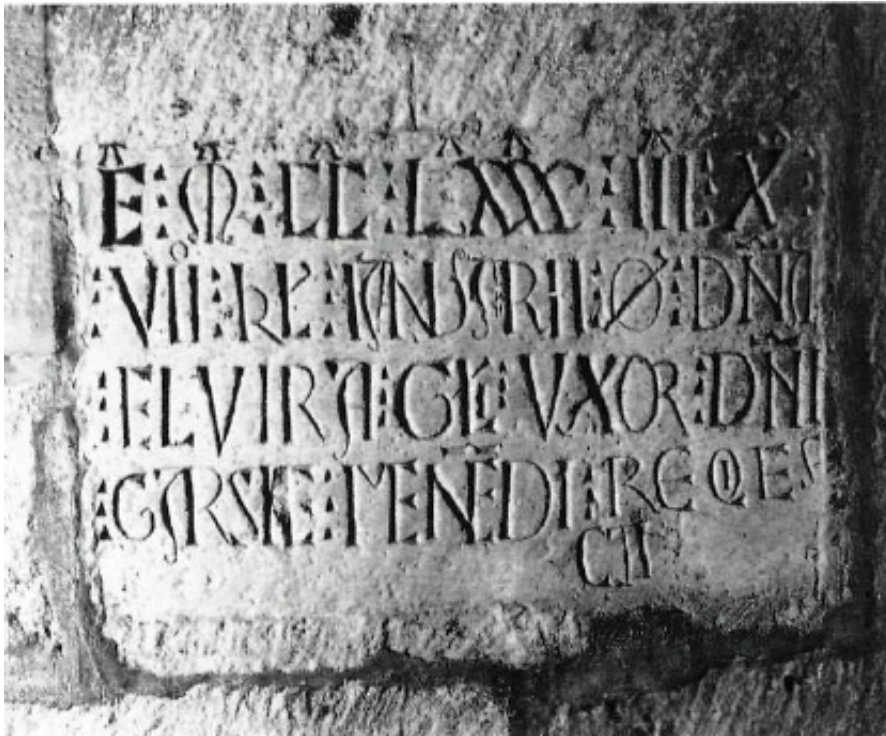 E : M : CC : LXXX : IIII : X
: VII : KL : IANUARII : Ø : DÑA
: ELVIRA : GL : VXOR : DÑI
: GARSIE : MENEDI : REQES
CIT